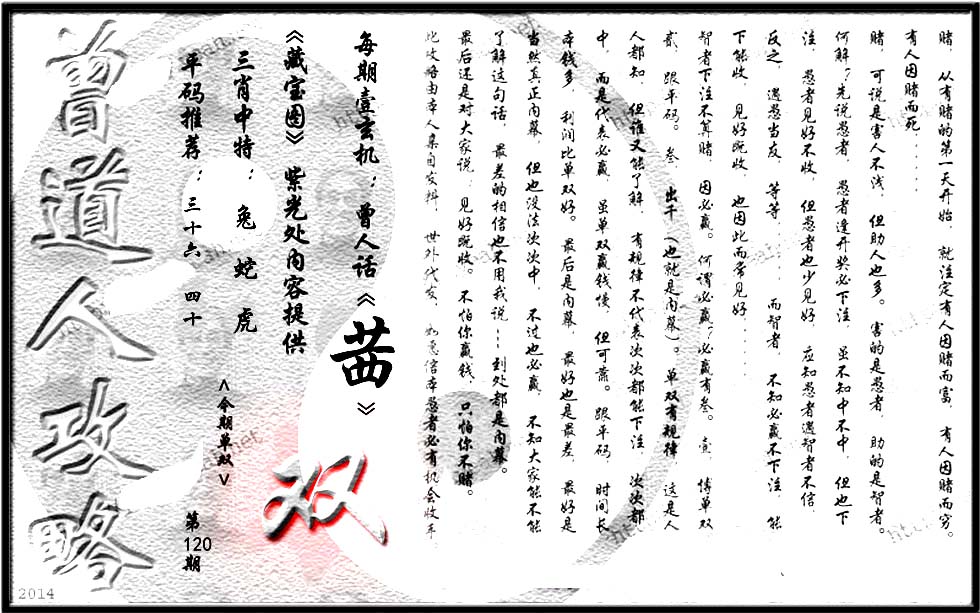 赌，从有赌的第一天开始，就注定有人因赌而富，有人因赌而穷。
有人因赌而死......
赌，可说是害人不浅，但助人也多。害的是愚者，助的是智者。
何解？先说愚者，愚者逢开奖必下注，虽不知中不中，但也下
注，愚者见好不收，但愚者也少见好，应知愚者遇智者不信，
反之，遇愚当友，等等......而智者，不知必赢不下注，能
下能收，见好既收，也因此而常见好......
智者下注不算赌，因必赢。何谓必赢？必赢有叁。壹，博单双，
贰，跟平码。叁，出千（也就是内幕）。单双有规律，这是人
人都知，但谁又能了解，有规律不代表次次都能下注，次次都
中，而是代表必赢，虽单双赢钱慢，但可靠。跟平码，时间长
本钱多，利润比单双好。最后是内幕，最好也是最差，最好是
当然真正内幕，但也没法次次中，不过也必赢，不知大家能不能
了解这句话，最差的相信也不用我说---到处都是内幕。
最后还是对大家说：见好既收。不怕你赢钱，只怕你不赌。
此攻略由本人亲自发料，世外代友，如愿信本愚者必有机会收车
每期壹玄机：曾人话《茜》
《藏宝图》紫光处内容提供
三肖中特：兔 蛇 虎
平码推荐：三十六 四十
<今期单双>
双
第120期
曾道人攻略
2014